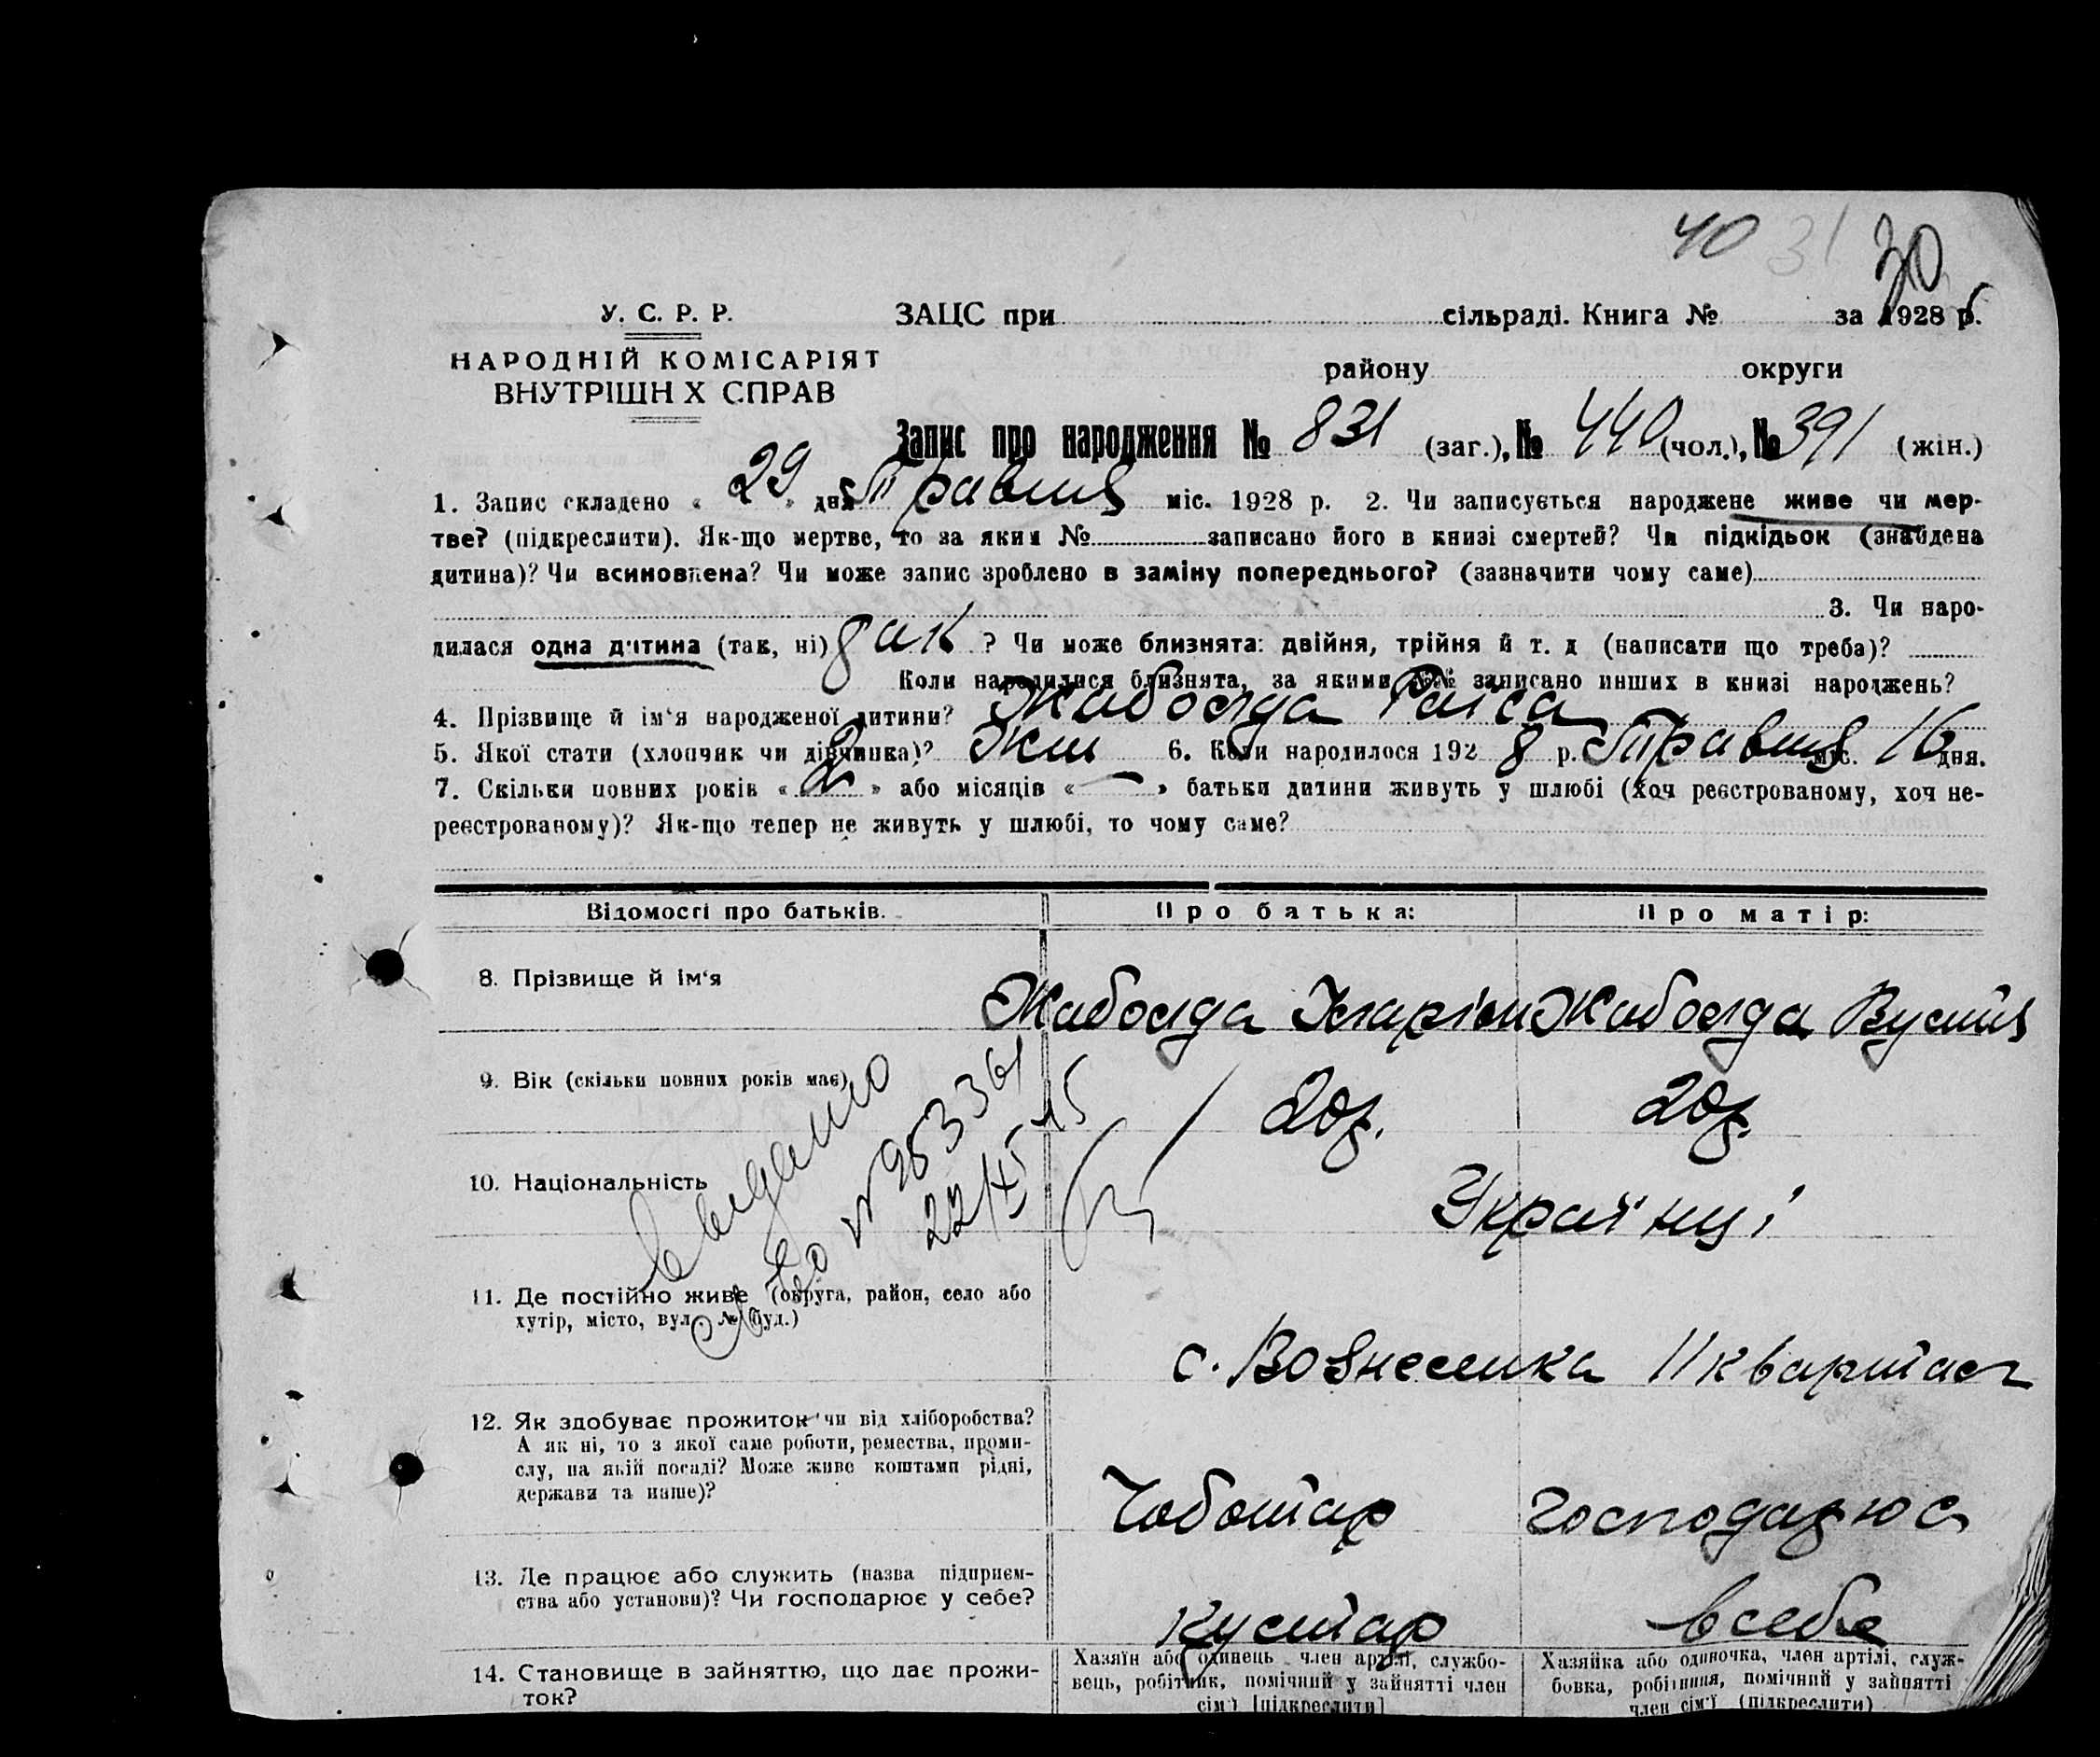 40 31 30
У. С. Р. Р. ЗАЦС при сільраді. Книга № за 1928 р.
НАРОДНІЙ КОМІСАРІЯТ
ВНУТРІШН Х СПРАВ
району округи
Запис про народження № 831 (заг.), № 440 (чол.), № 391 (жін.)
1. Запис складено « 29 » дня Травня міс. 1928 р. 2. Чи записується народжене живе чи мер-
тве? (підкреслити). Як-що мертве, то за яким № записано його в книзі смертей? Чи підкідьок (знайдена
дитина)? Чи всиновлена? Чи може запис зроблено в заміну попереднього? (зазначити чому саме)
3. Чи наро-
дилася одна дитина (так, ні) так ? Чи може близнята: двійня, трійня й т. д (написати що треба)?
Коли народилися близнята, за якими №№ записано инших в книзі народжень?
4. Прізвище й ім‘я народженої дитини? Жабоєда Раїса
5. Якої стати (хлопчик чи дівчинка)? Жін 6. Коли народилося 192 8 р. Травня міс. 16 дня.
7. Скільки повних років « 2 » або місяців « — » батьки дитини живуть у шлюбі (хоч реєстрованому, хоч не-
реєстрованому)? Як-що тепер не живуть у шлюбі, то чому саме?
Відомості про батьків. Про батька: Про матір:
8. Прізвище й ім‘я Жабоєда Іларіон Жабоєда Вустня
9. Вік (скільки повних років має) 20р. 20р.
10. Національність Українці
Свидетво
22/IV 45
11. Де постійно живе (округа, район, село або
хутір, місто, вул. № буд.)
с. Вознесенка 11 квартал
12. Як здобуває прожиток чи від хліборобства?
А як ні, то з якої саме роботи, ремества, проми-
слу, на якій посаді? Може живе коштами рідні,
держави та инше)?
Чоботар Господарює
13. Де працює або служить (назва підприєм-
ства або установи)? Чи господарює у себе?
Кустар в себе
14. Становище в зайняттю, що дає прожи-
ток?
Хазяїн або одинець член артілі, службо-
вець, робітник, помічний у зайнятті член
сім‘ї [підкреслити]
Хазяйка або одиночка, член артілі, служ-
бовка, робітниця, помічний у зайнятті
член сім‘ї (підкреслити)